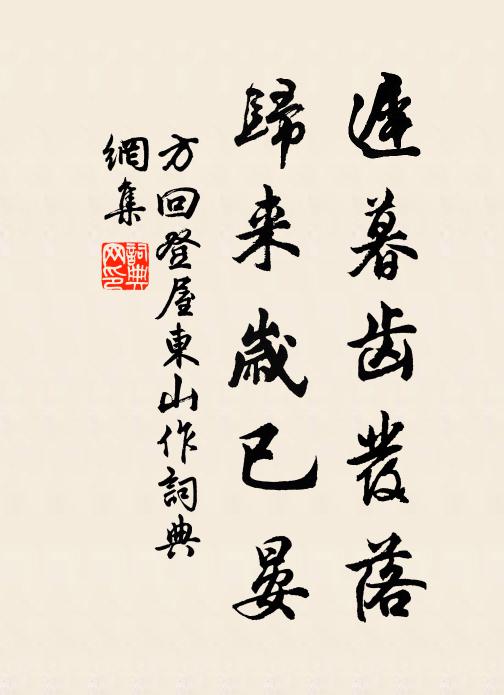 遲暮齒發落
歸来歲已晏
方回登屋東山作詞典
網集
詞典
网印